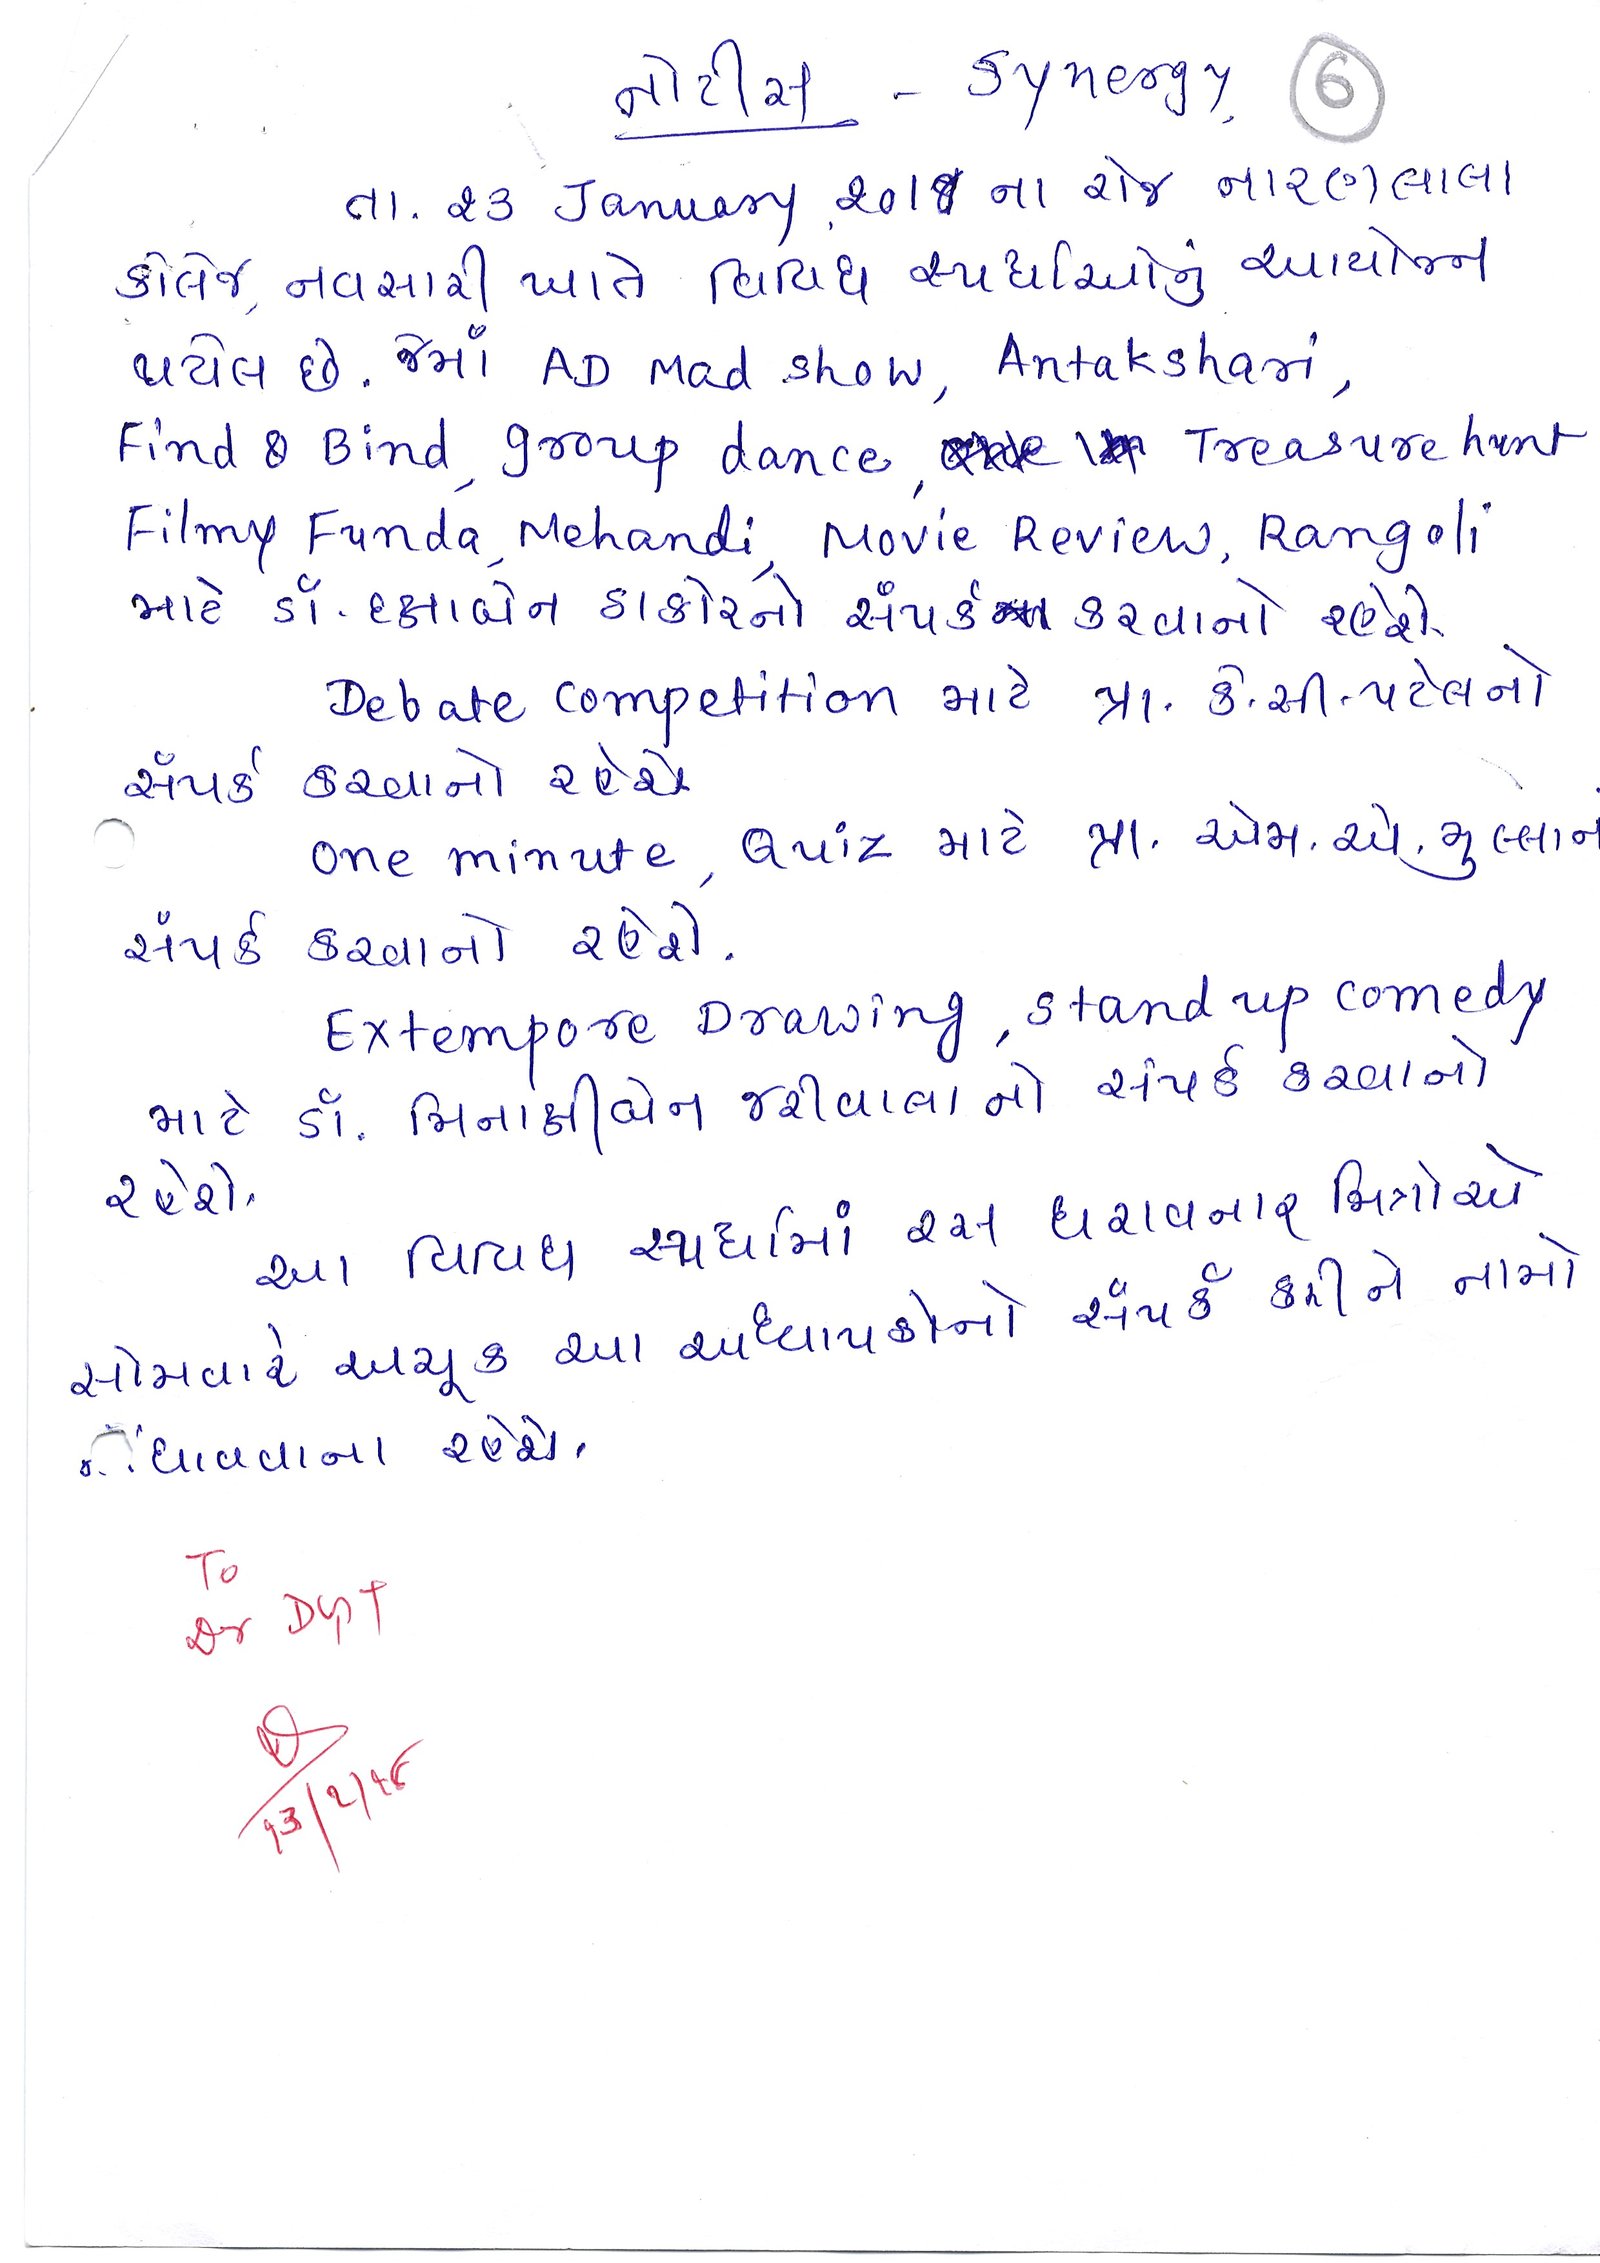 નોટીસ - Synergy 6
તા. 23 January, 2018 ના રોજ નારણલાલા
કોલેજ, નવસારી ખાતે વિવિધ સ્પર્ધાઓનું આયોજન
થયેલ છે. જેમાં AD Mad Show, Antakshari,
Find & Bind, group dance, Treasure hunt
Filmy Funda, Mehandi, Movie Review, Rangoli
માટે ડૉ. દક્ષાબેન ઠાકોરનો સંપર્ક કરવાનો રહેશે.
Debate Competition માટે પ્રા. કે. સી. પટેલનો
સંપર્ક કરવાનો રહેશે
One minute, Quiz માટે પ્રા. એમ. એ. મુલ્લાનો
સંપર્ક કરવાનો રહેશે.
Extempore Drawing, Stand up Comedy
માટે ડૉ. મિનાક્ષીબેન જરીવાલાનો સંપર્ક કરવાનો
રહેશે.
આ વિવિધ સ્પર્ધામાં રસ ધરાવનાર મિત્રોએ
સોમવારે અચૂક આ અધ્યાપકોનો સંપર્ક કરીને નામો
નોંધાવવાના રહેશે.
To